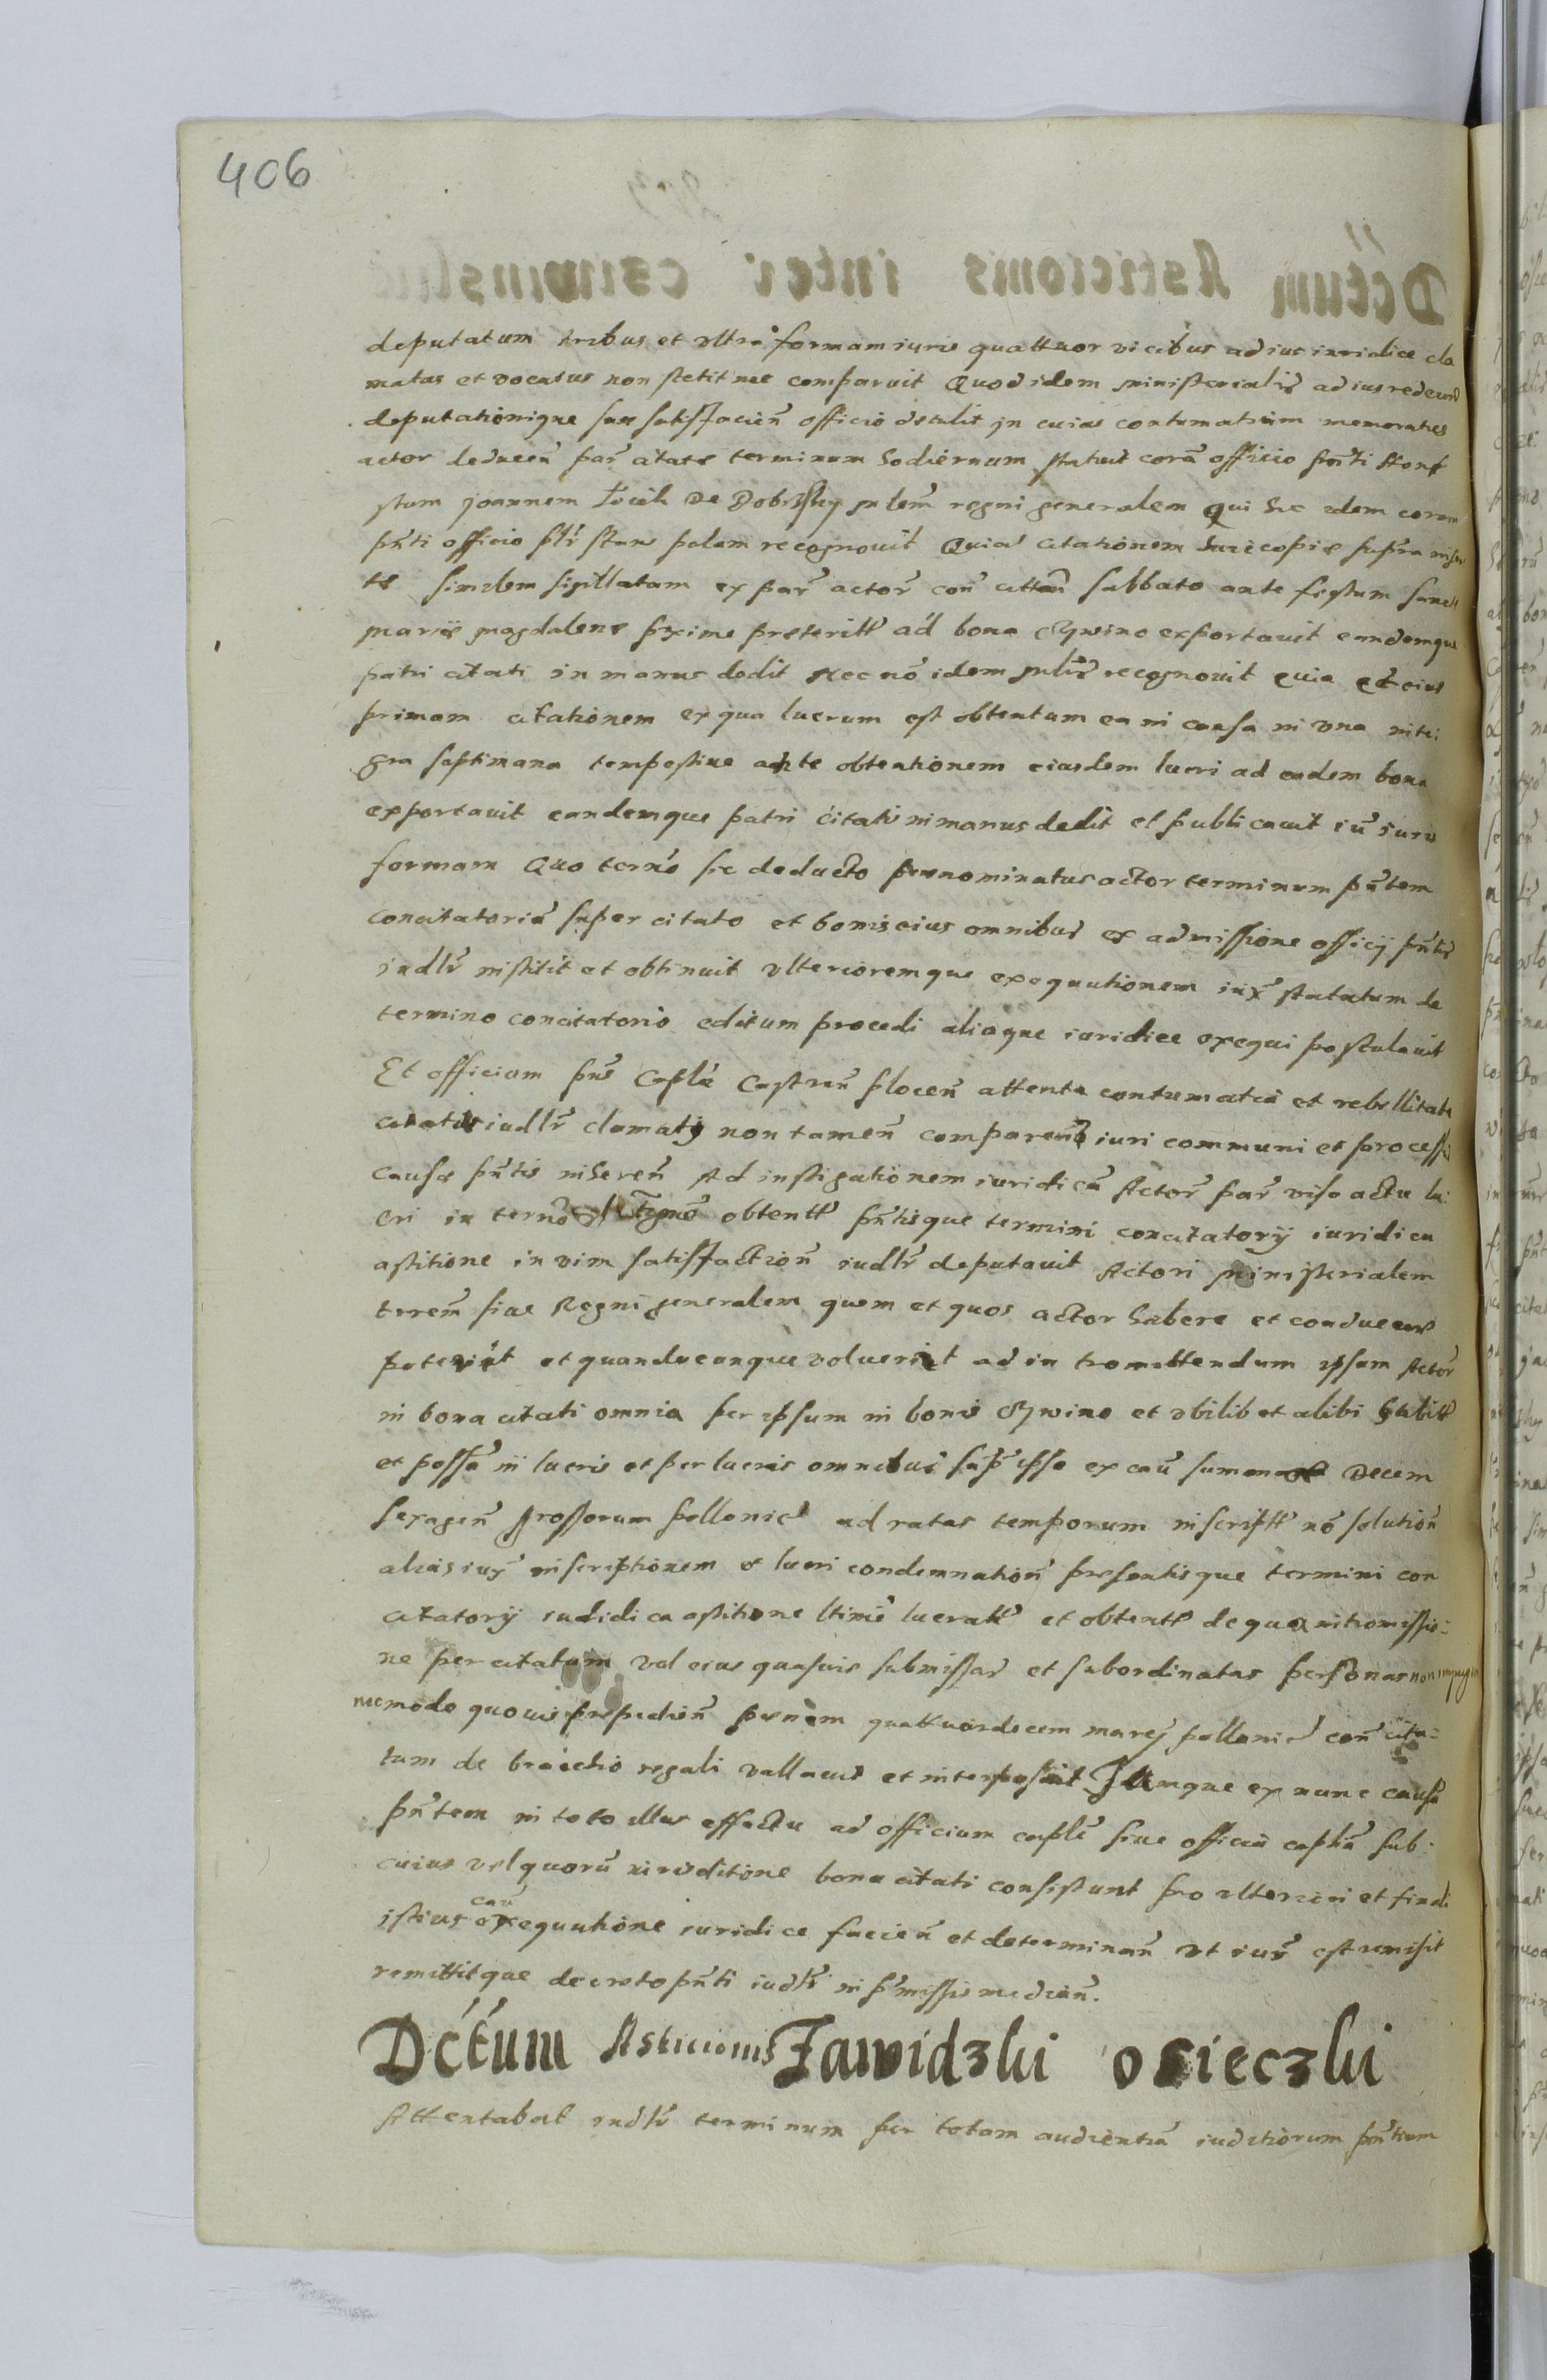 406
deputatum tribus et vltra formam iuris quattuor vicibus ad ius iuridice cla
matus et vocatus non stetit nec comparuit Quod idem ministerialis ad ius rediens
deputationique sue satisfacien̄ officio detulit in cuius contumatiam memoratus
actor deducen̄ par̄ citate terminum hodiernum statuit corā officio pn̄ti Hone
stum Joannem De regni generalem qui hic idem coram
pn̄ti officio plr̄ stans palam recognouit Quia citationem huic copie supra
te similem sigillatam ex par̄ actor̄ con̄ citatū sabbato ante festum sancte
marie magdalene pxime preteritū ad bona exportauit eandemque
patri citati in manus dedit Nec nō idem recognouit quia et eius
primam citationem ex qua lucrum est obtentum ea in causa in vna inte:
gra septimana tempestiue ante obtentionem eiusdem lucri ad eadem bona
exportauit eandemque patri citati in manus dedit et publicauit iuris
formam Quo termō sic deducto prenominatus actor terminum pn̄tem
concitatoriū super citato et bonis eius omnibus ex admissione officij pn̄tis
iudlr̄ institit et obtinuit vlterioremque exequutionem iux̄ statutum de
termino concitatorio editum procedi aliaque iuridice exequi postulauit
Et officium pn̄s Caple Castren̄ plocen̄ attenta contumatia et rebellitate
citati iudlr̄ clamati non tamen̄ comparen̄ iuri communi et processui
cause pn̄tis inheren̄ Ad instigationem iuridicā Actor̄ par̄ viso actu lu:
cri in termō obtentū pn̄tisque termini concitatorij iuridica
astitione in vim satisfaction̄ iudlr̄ deputauit Actori ministerialem
trrem̄ siue Regni generalem quem et quos actor habere et conducere
poterit et quandocunque voluerit ad intromittendum ipsum Actor̄
in bona citati omnia per ipsum in bonis et vbilibet alibi habitū
et possā in lucris et per lucris omnibus ex cau̅ summe Decem
sexagen̄ grossorum pollonic̄ ad ratas temporum inscriptū nō solution̄
alias iux̄ inscriptionem et lucri condemnation̄ presentisque termini con
citatorij iuridica astitione ltime lucratū et obtentū de qua intromissio=
ne per citatum vel eius quasuis submissas et subordinatas personas non impugn
ne modo quouis prepedien̄ penam quattuordecim marcȷ pollonic̄ con̄ cita=
tum de brachio regali vallauit et interposuit Ipsamque ex nunc causā
pn̄tem in toto illius effectu ad officium caple siue officia sub
cuius vel quorū iurisditione bona citati consistunt pro vlteriori et finali
istius cau̅ exequutione iuridice facien̄ et determinan̄ vt iur̄ est remisit
remittitque decreto pn̄ti iudlr̄ in pmissis median̄.
Dctum Asticionis Zawidzki osieczki
Attentabat iudlr̄ terminum per totam audientiā iuditiorum pn̄tium